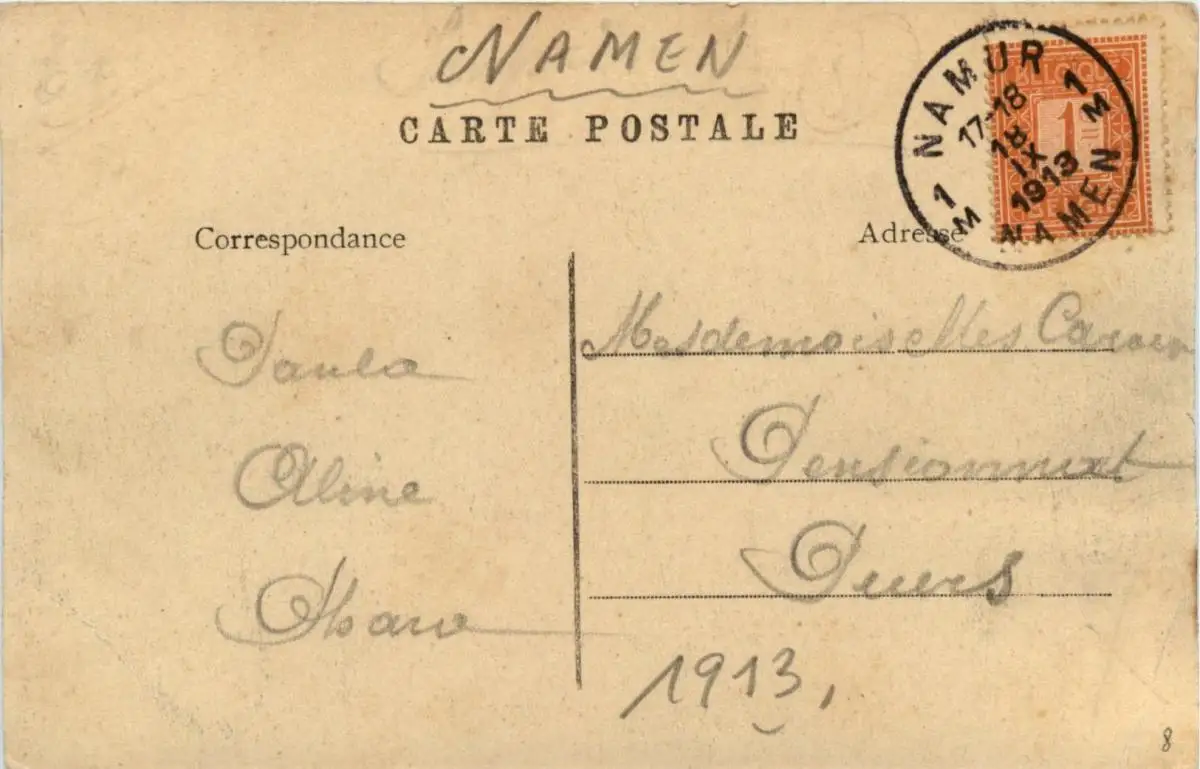 NAMEN
CARTE POSTALE
NAMUR
1 1
M M
17-18
18
IX
1913
NAMEN
BELGIQUE
1
Correspondance
Adresse
Paula
Aline
Mesdemoiselles
Pensionnat
Puers
1913,
8